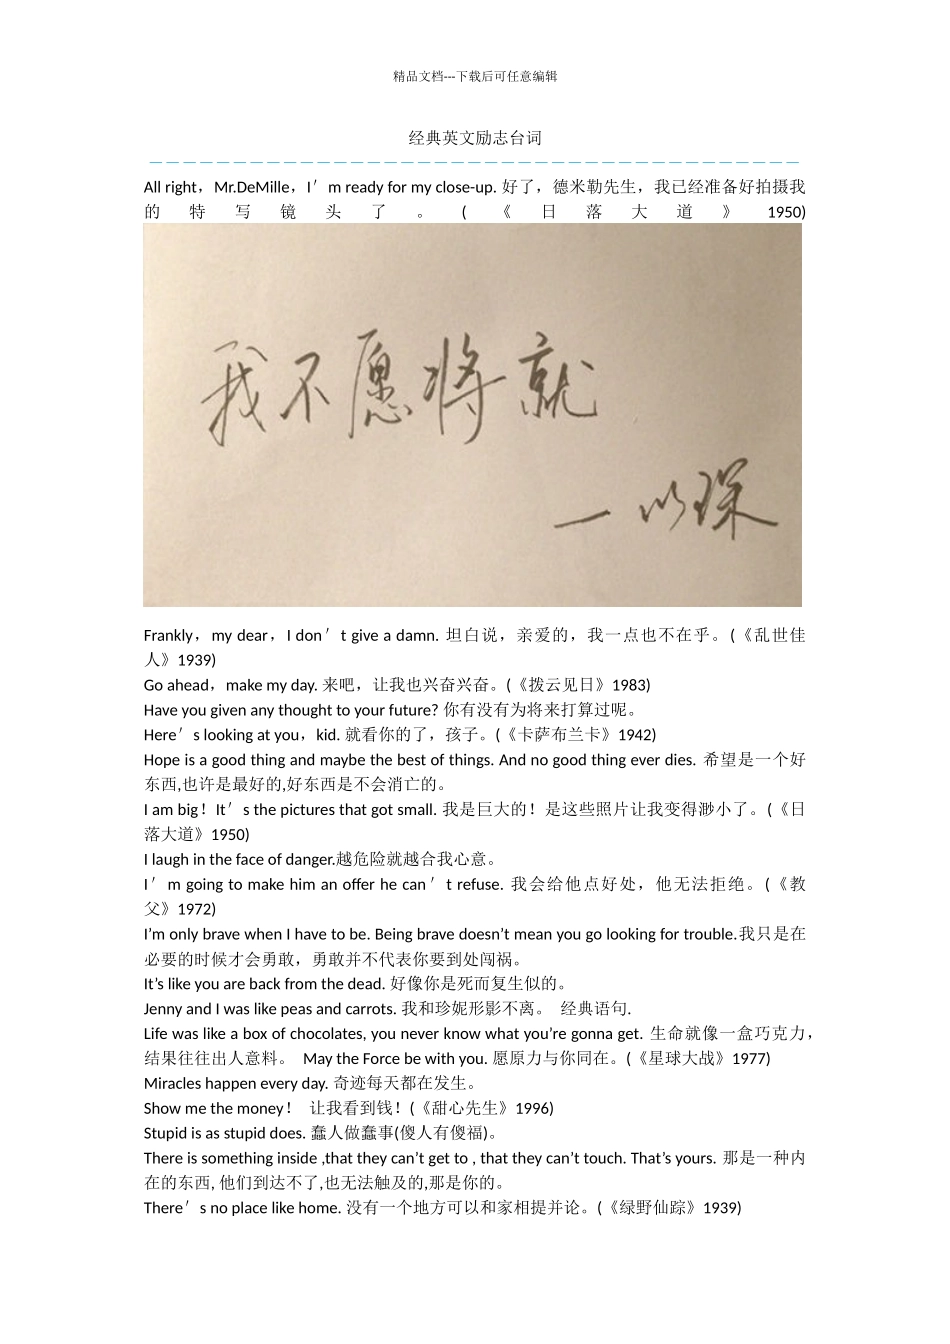 精品文档---下载后可任意编辑
经典英文励志台词
All right，Mr.DeMille，I′m ready for my close-up. 好了，德米勒先生，我已经准备好拍摄我
的特写镜头了。(《日落大道》1950)
我不愿将就
一以琛
Frankly，my dear，I don′t give a damn. 坦白说，亲爱的，我一点也不在乎。(《乱世佳
人》1939)
Go ahead，make my day. 来吧，让我也兴奋兴奋。(《拨云见日》1983)
Have you given any thought to your future? 你有没有为将来打算过呢。
Here′s looking at you，kid. 就看你的了，孩子。(《卡萨布兰卡》1942)
Hope is a good thing and maybe the best of things. And no good thing ever dies. 希望是一个好
东西,也许是最好的,好东西是不会消亡的。
I am big！It′s the pictures that got small. 我是巨大的！是这些照片让我变得渺小了。(《日
落大道》1950)
I laugh in the face of danger.越危险就越合我心意。
I′m going to make him an offer he can′t refuse. 我会给他点好处，他无法拒绝。(《教
父》1972)
I’m only brave when I have to be. Being brave doesn’t mean you go looking for trouble.我只是在
必要的时候才会勇敢，勇敢并不代表你要到处闯祸。
It’s like you are back from the dead. 好像你是死而复生似的。
Jenny and I was like peas and carrots. 我和珍妮形影不离。 经典语句.
Life was like a box of chocolates, you never know what you’re gonna get. 生命就像一盒巧克力，
结果往往出人意料。 May the Force be with you. 愿原力与你同在。(《星球大战》1977)
Miracles happen every day. 奇迹每天都在发生。
Show me the money！ 让我看到钱！(《甜心先生》1996)
Stupid is as stupid does. 蠢人做蠢事(傻人有傻福)。
There is something inside ,that they can’t get to , that they can’t touch. That’s yours. 那是一种内
在的东西, 他们到达不了,也无法触及的,那是你的。
There′s no place like home. 没有一个地方可以和家相提并论。(《绿野仙踪》1939)